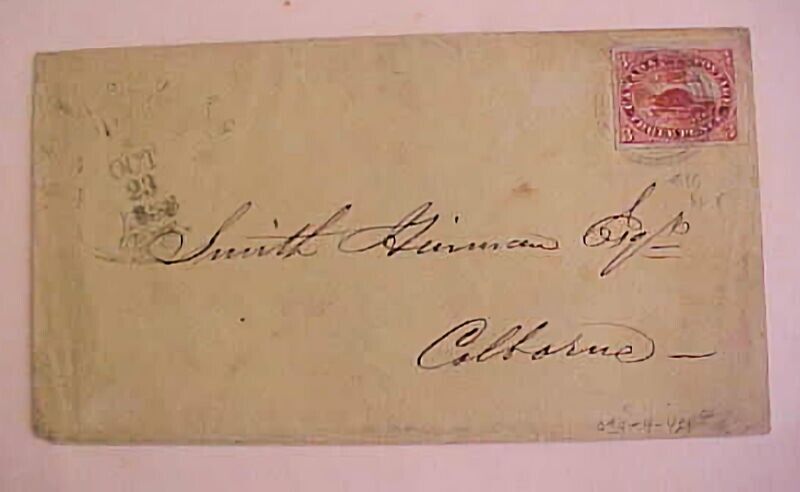 CANADA POSTAGE
3 3
OCT
23
Smith Hinman Esqr
Colborne